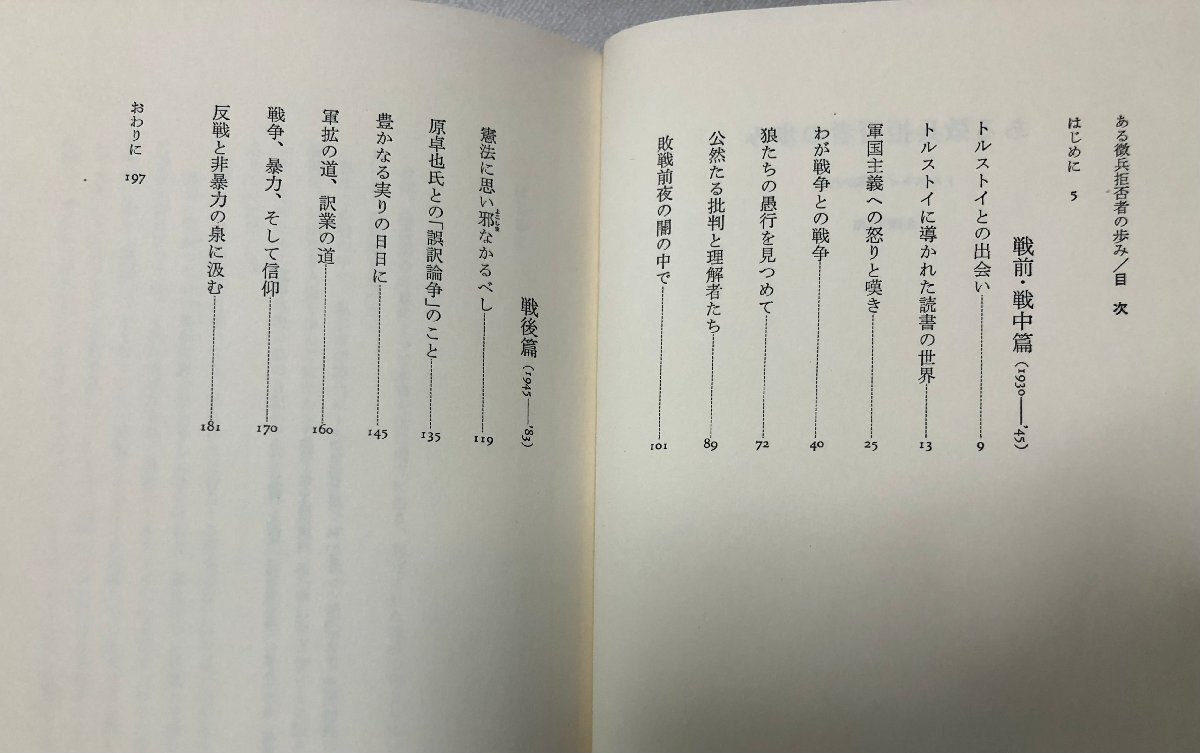 ある徴兵拒否者の歩み/目 次
はじめに 5
戦前・戦中篇(1930—'45)
トルストイとの出会い 9
トルストイに導かれた読書の世界 13
軍国主義への怒りと嘆き 25
わが戦争との戦争 40
狼たちの愚行を見つめて 72
公然たる批判と理解者たち 89
敗戦前夜の闇の中で 101
戦後篇(1945—'83)
憲法に思い邪なかるべし 119
原卓也氏との「誤訳論争」のこと 135
豊かなる実りの日日に 145
軍拡の道、訳業の道 160
戦争、暴力、そして信仰 170
反戦と非暴力の泉に汲む 181
おわりに 197